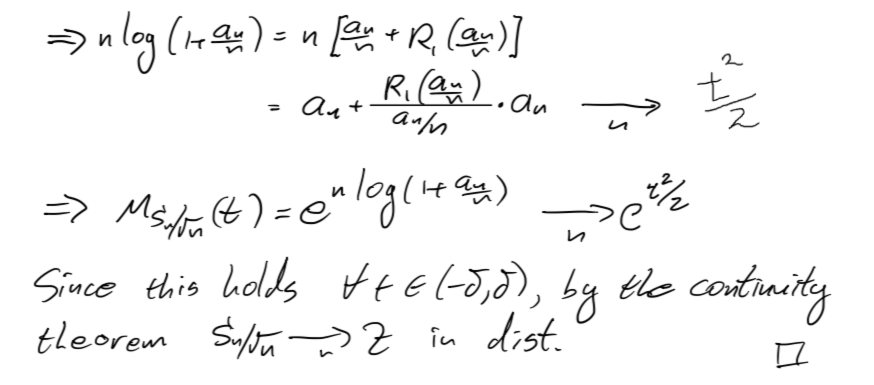 ⇒ n log (1+ aₙ/n) = n [aₙ/n + R₁ (aₙ/n)]
= aₙ + R₁(aₙ/n) / (aₙ/n) · aₙ ⟶ₙ t²/2
⇒ M_{Sₙ/√n} (t) = e^{n log(1+ aₙ/n)} ⟶ₙ e^{t²/2}
Since this holds ∀ t ∈ (-δ,δ), by the continuity
theorem Sₙ/√n ⟶ₙ Z in dist. □